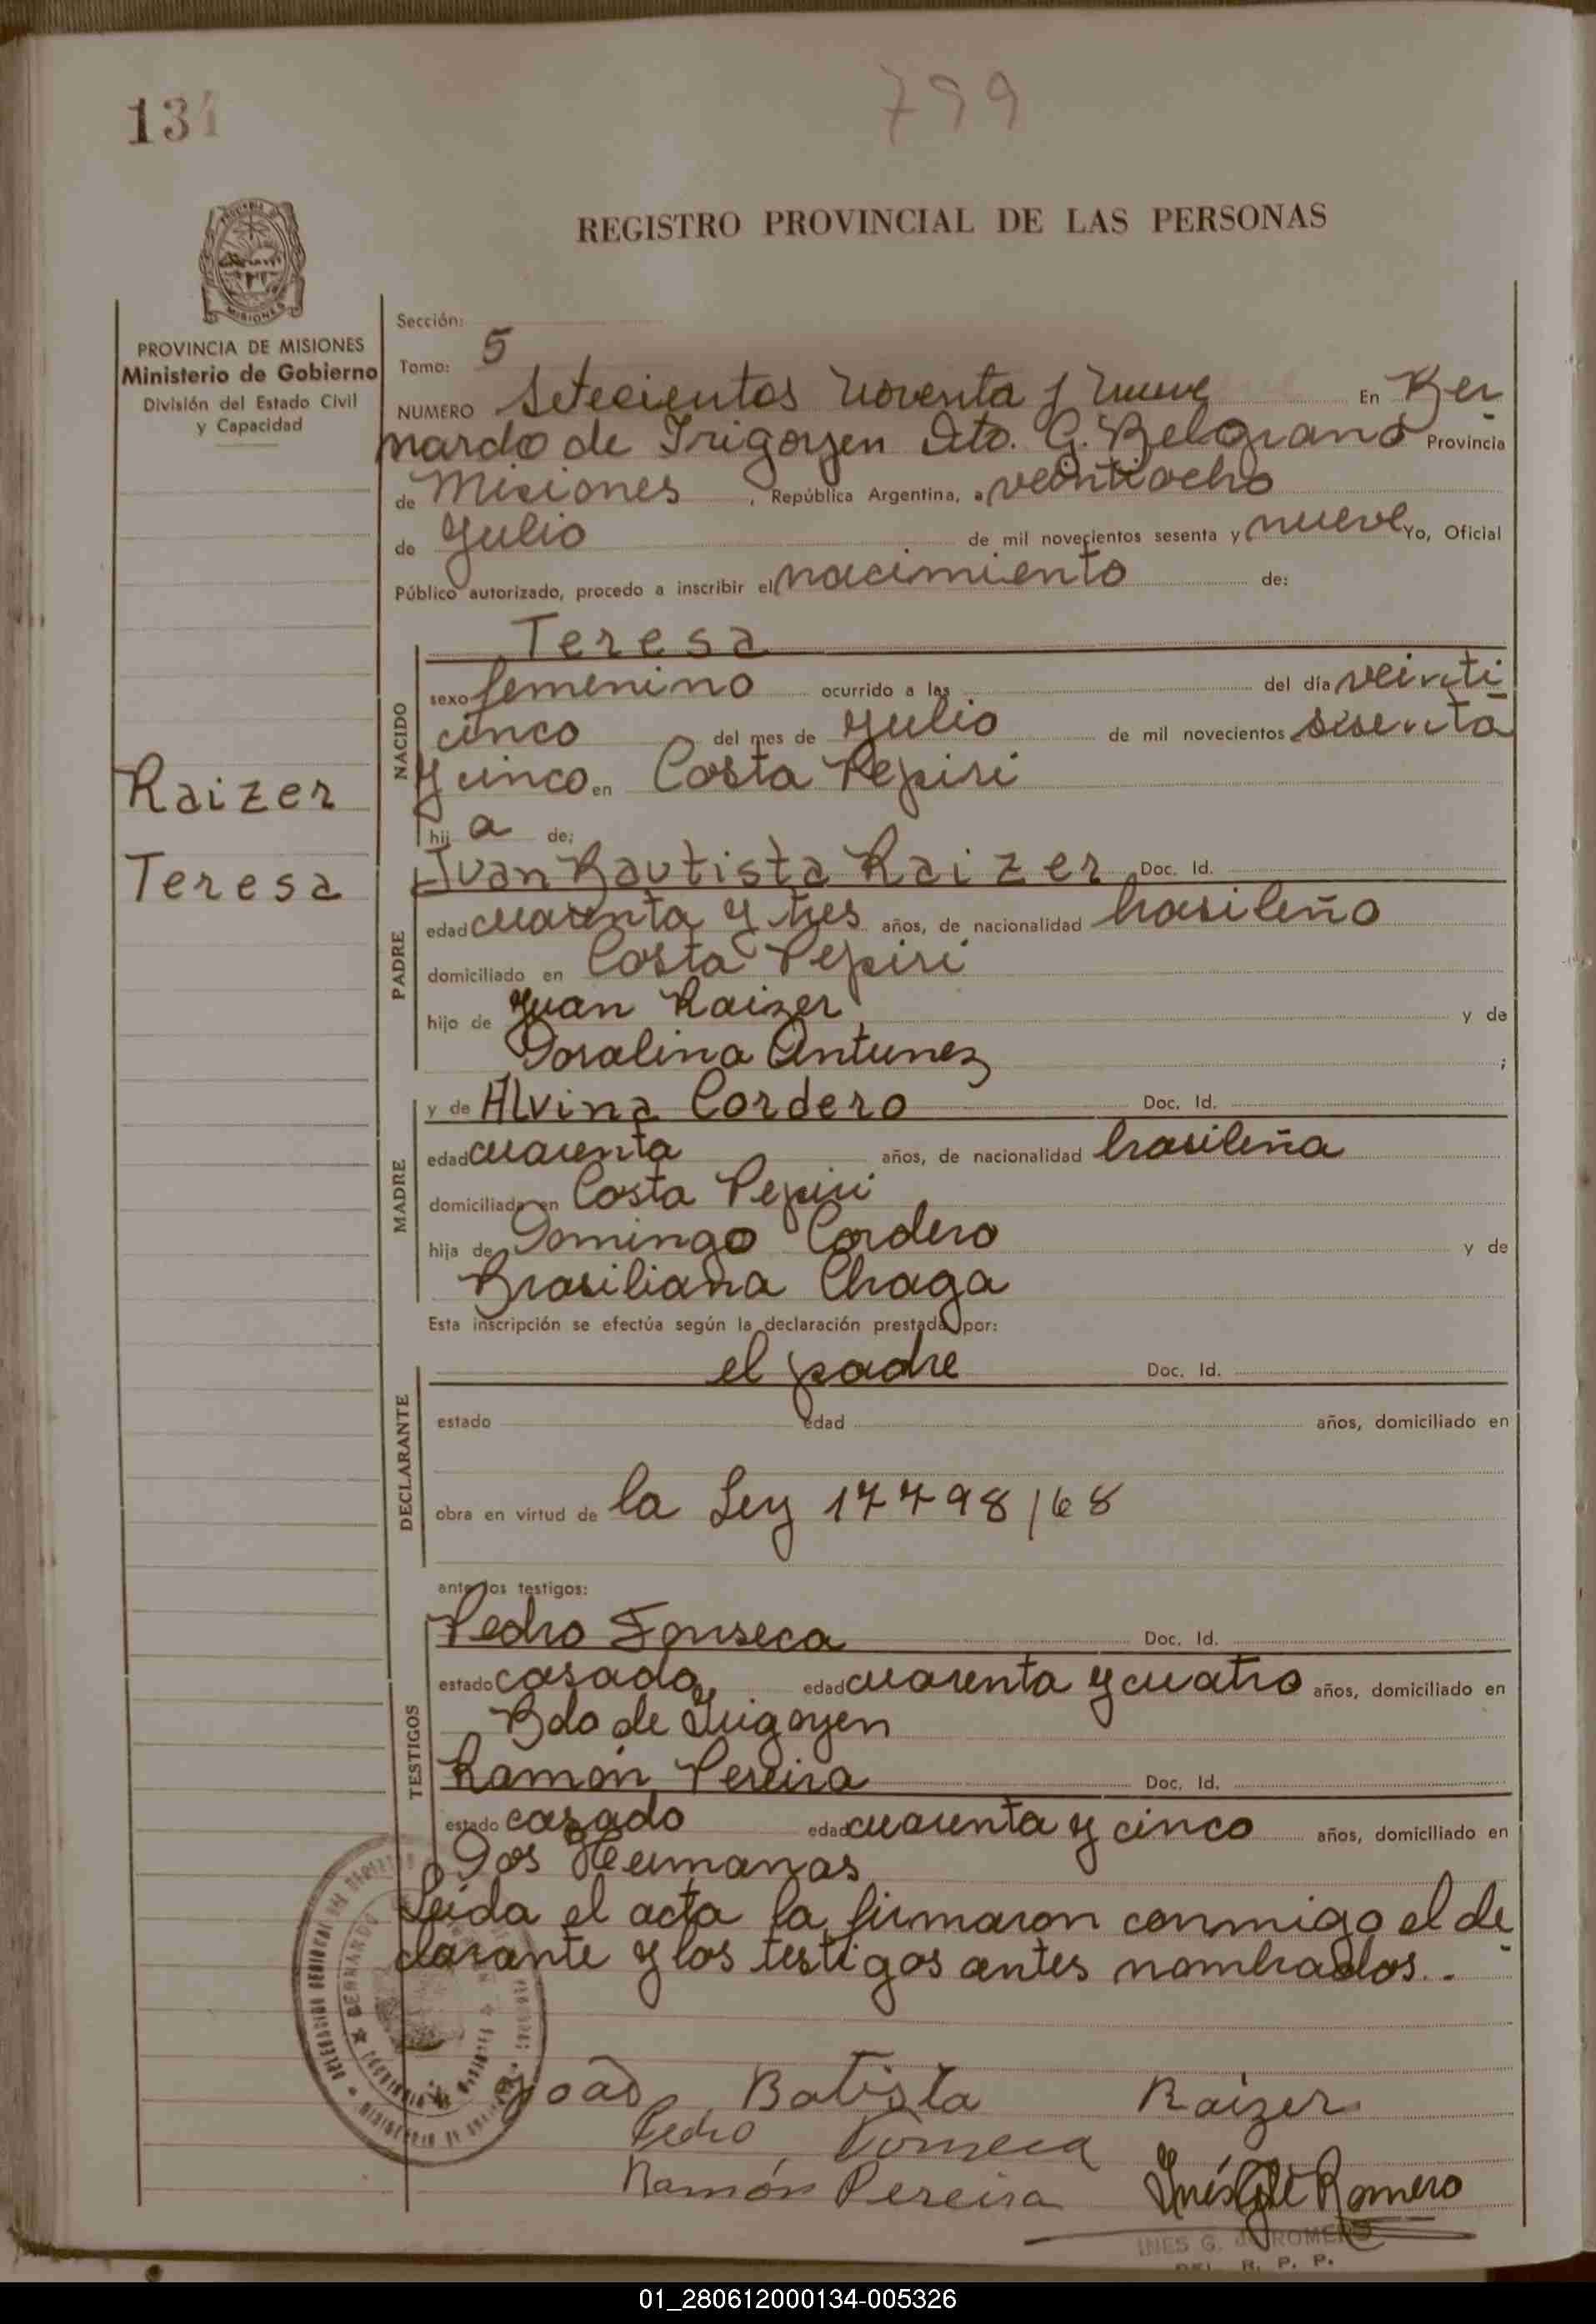 134
799
REGISTRO PROVINCIAL DE LAS PERSONAS
PROVINCIA DE
MISIONES
PROVINCIA DE MISIONES
Ministerio de Gobierno
División del Estado Civil
y Capacidad
Raizer
Teresa
Sección:
Tomo: 5
NUMERO Setecientos noventa y nueve En Ber
nardo de Irigoyen Dto. G. Belgrano Provincia
de Misiones , República Argentina, a veintiocho
de Julio de mil novecientos sesenta y nueve Yo, Oficial
Público autorizado, procedo a inscribir el nacimiento de:
NACIDO
Teresa
sexo femenino ocurrido a las del día veinti
cinco del mes de Julio de mil novecientos sesenta
y cinco en Costa Pepiri
hij a de:
PADRE
Juan Bautista Raizer Doc. Id.
edad cuarenta y tres años, de nacionalidad brasileño
domiciliado en Costa Pepiri
hijo de Juan Raizer y de
Doralina Antunez ;
MADRE
y de Alvina Cordero Doc. Id.
edad cuarenta años, de nacionalidad brasileña
domiciliada en Costa Pepiri
hija de Domingo Cordero y de
Brasiliana Chaga
Esta inscripción se efectúa según la declaración prestada por:
DECLARANTE
el padre Doc. Id.
estado edad años, domiciliado en
obra en virtud de la Ley 17798/68
ante los testigos:
TESTIGOS
Pedro Fonseca Doc. Id.
estado casado edad cuarenta y cuatro años, domiciliado en
Bdo de Irigoyen
Ramón Pereira Doc. Id.
estado casado edad cuarenta y cinco años, domiciliado en
Dos Hermanas
Leida el acta la firmaron conmigo el de
clarante y los testigos antes nombrados..
BERNARDO
Joáo Batista Raizer
Pedro Fonseca
Ramón Pereira
Inés G. de Romero
INES G. de ROMERO
DEL. R. P. P.
01_280612000134-005326